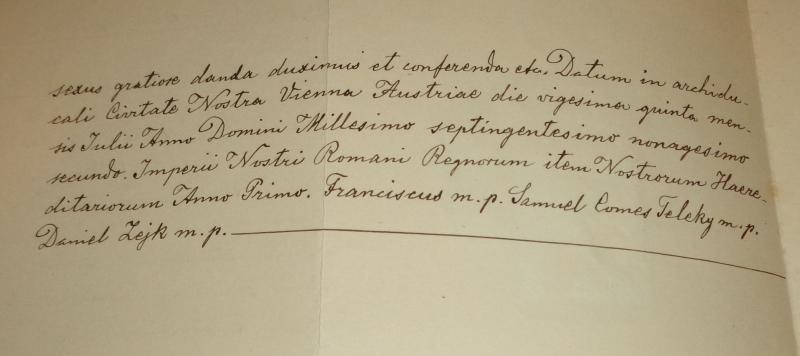 sexus gratiose danda duximus et conferenda etc. Datum in archidu-
cali Civitate Nostra Vienna Austriae die vigesima quinta men-
sis Iulii Anno Domini Millesimo septingentesimo nonagesimo
secundo. Imperii Nostri Romani Regnorum item Nostrorum Haere-
ditariorum Anno Primo. Franciscus m. p. Samuel Comes Teleky m. p.
Daniel Zejk m. p.